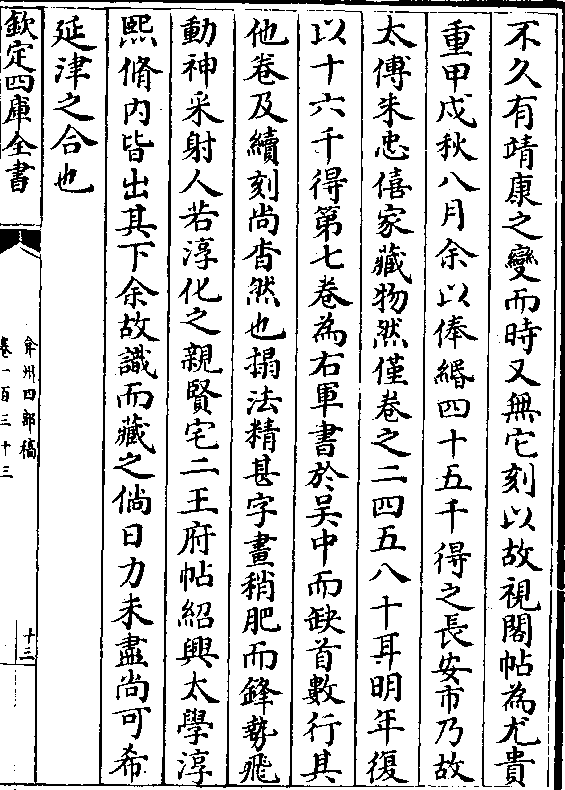 不久有靖康之變而時又無它刻以故視閣帖為尤貴
重甲戌秋八月余以俸緡四十五千得之長安市乃故
太傅朱忠僖家藏物然僅卷之二四五八十耳明年復
以十六千得第七卷為右軍書於吴中而缺首數行其
他卷及續刻尚杳然也搨法精甚字畫稍肥而鋒勢飛
動神采射人若淳化之親賢宅二王府帖紹興太學淳
熙脩内皆出其下余故識而藏之倘日力未盡尚可希
延津之合也
欽定四庫全書
弇州四部稿
卷一百三十三
十三